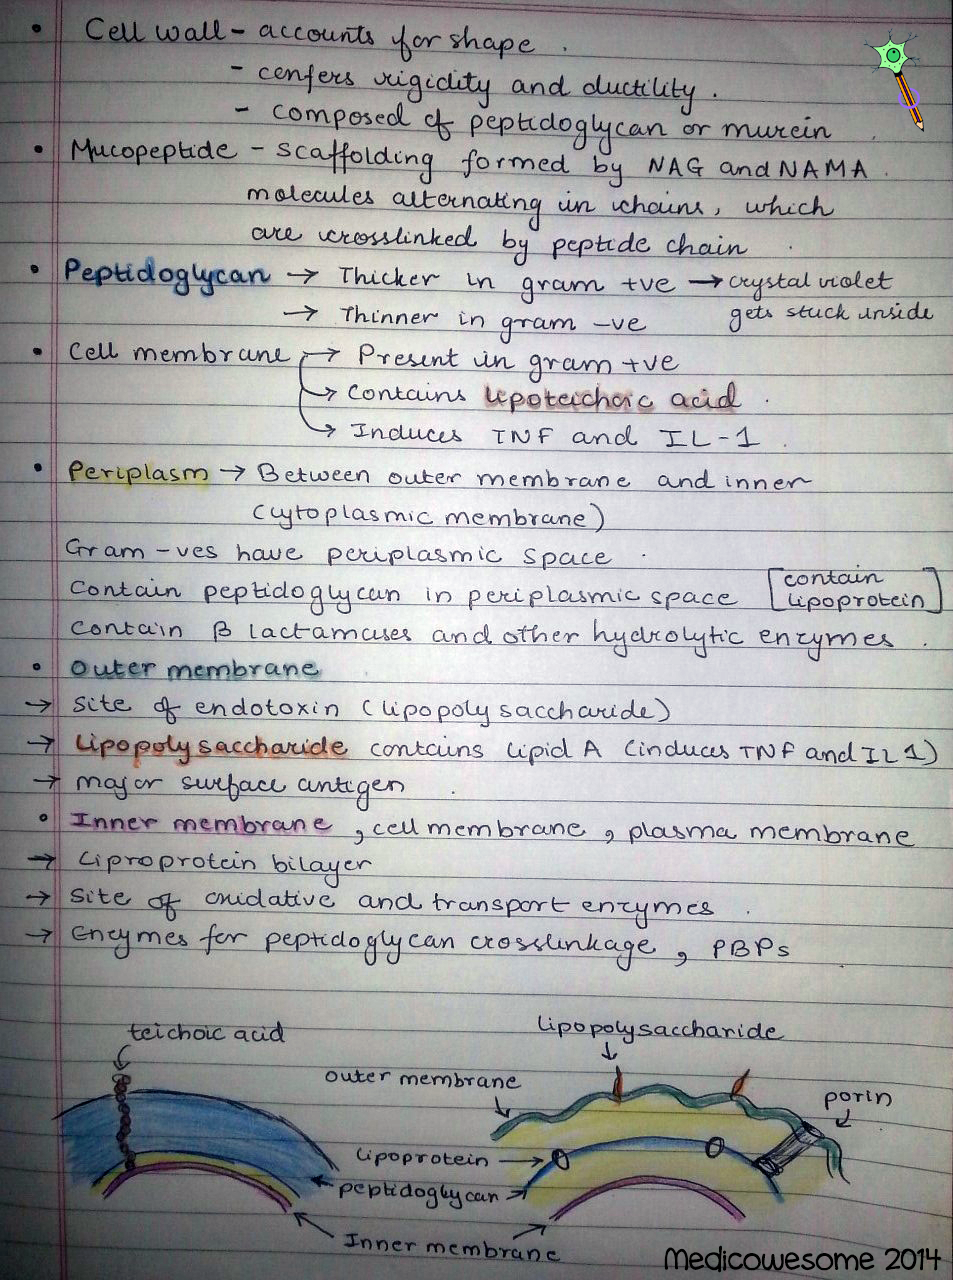 • Cell wall - accounts for shape.
- cenfers rigidity and ductility.
- composed of peptidoglycan or murein
• Mucopeptide - scaffolding formed by NAG and NAMA.
molecules alternating in chains, which
are crosslinked by peptide chain.
• Peptidoglycan → Thicker in gram +ve → crystal violet
gets stuck inside
→ Thinner in gram -ve
• Cell membrane → Present in gram +ve
→ Contains lipoteichoic acid.
→ Induces TNF and IL-1.
• Periplasm → Between outer membrane and inner
(cytoplasmic membrane)
Gram -ves have periplasmic space.
Contain peptidoglycan in periplasmic space [contain
lipoprotein]
Contain β lactamases and other hydrolytic enzymes.
• Outer membrane
→ Site of endotoxin (lipopolysaccharide)
→ Lipopolysaccharide contains lipid A (induces TNF and IL1)
→ major surface antigen.
• Inner membrane, cell membrane, plasma membrane
→ Liproprotein bilayer
→ Site of oxidative and transport enzymes.
→ Enzymes for peptidoglycan crosslinkage, PBPs
teichoic acid
lipopolysaccharide
outer membrane
porin
lipoprotein
peptidoglycan
Inner membrane
Medicowesome 2014